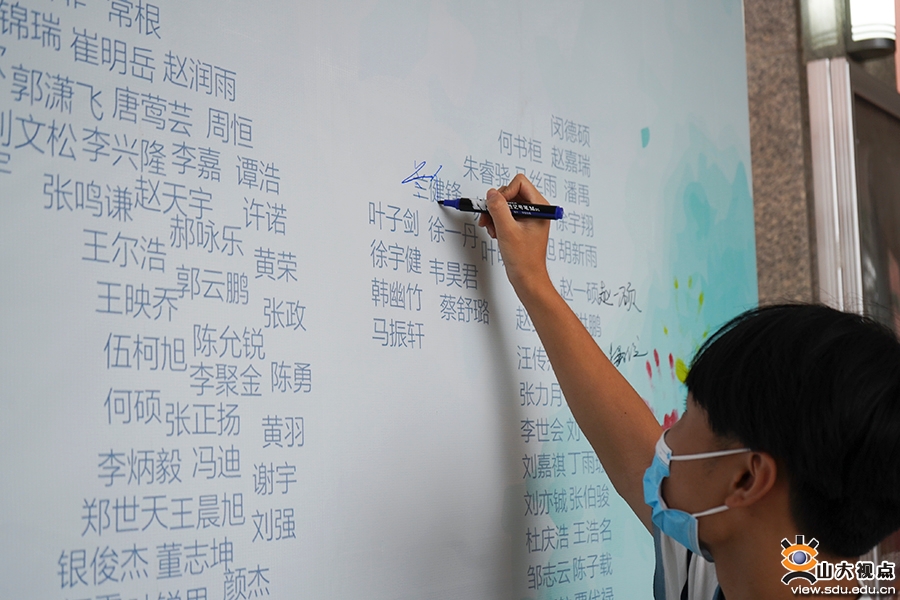 常根
锦瑞 崔明岳 赵润雨
郭潇飞 唐莺芸 周恒
文松 李兴隆 李嘉 谭浩
张鸣谦 赵天宇 许诺
王尔浩 郝咏乐 黄荣
王映乔 郭云鹏 张政
伍柯旭 陈允锐
李聚金 陈勇
何硕 张正扬 黄羽
李炳毅 冯迪 谢宇
郑世天 王晨旭 刘强
银俊杰 董志坤
颜杰
闵德硕
何书桓 赵嘉瑞
朱睿骁 丝雨 潘禹
健锋 徐宇翔
叶子剑 徐一丹 叶 旭 胡新雨
徐宇健 韦昊君
赵一硕 赵一硕
韩幽竹 蔡舒璐
赵 鹏
马振轩
汪传
张力月
李世会 刘
刘嘉祺 丁雨
刘亦铖 张伯骏
杜庆浩 王浩名
邹志云 陈子载
山大视点
view.sdu.edu.cn